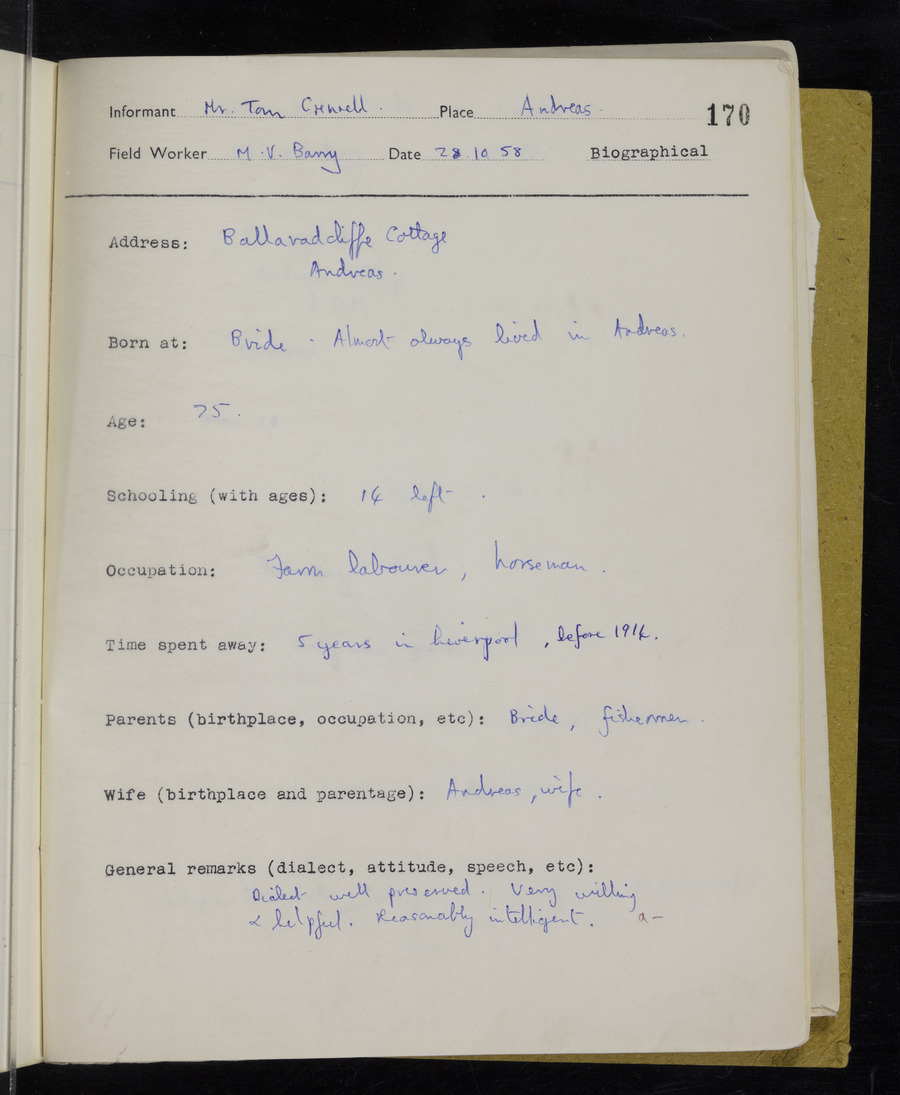 Informant Mr. Tom Crennell. Place Andreas. 170
Field Worker M.V. Barry Date 28.10.58 Biographical
Address: Ballavadcliffe Cottage
Andreas.
Born at: Bride. Almost always lived in Andreas.
Age: 75.
Schooling (with ages): 14 left.
Occupation: Farm labourer, horseman.
Time spent away: 5 years in Liverpool, before 1914.
Parents (birthplace, occupation, etc): Bride, fishermen.
Wife (birthplace and parentage): Andreas, wife.
General remarks (dialect, attitude, speech, etc):
Dialect well preserved. Very willing
& helpful. Reasonably intelligent. a-